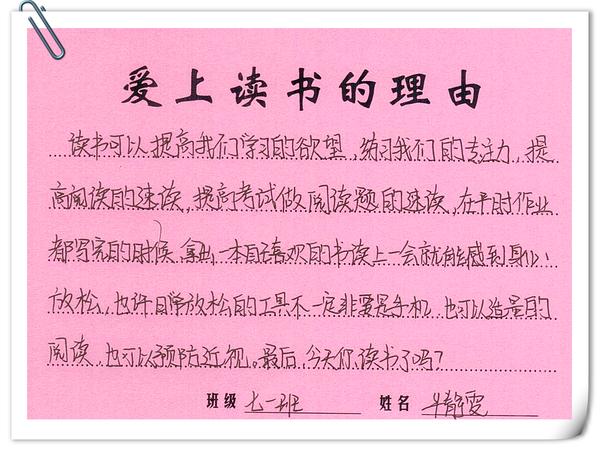 爱上读书的理由
读书可以提高我们学习的欲望，练习我们的专注力，提
高阅读的速读，提高考试做阅读题的速读，在平时作业
都写完的时候，拿出一本自己喜欢的书读上一会就能感到身心
放松，也许日常放松的工具不一定非要是手机，也可以适量的
阅读，也可以预防近视。最后，今天你读书了吗？
班级 七一班 姓名 静雯